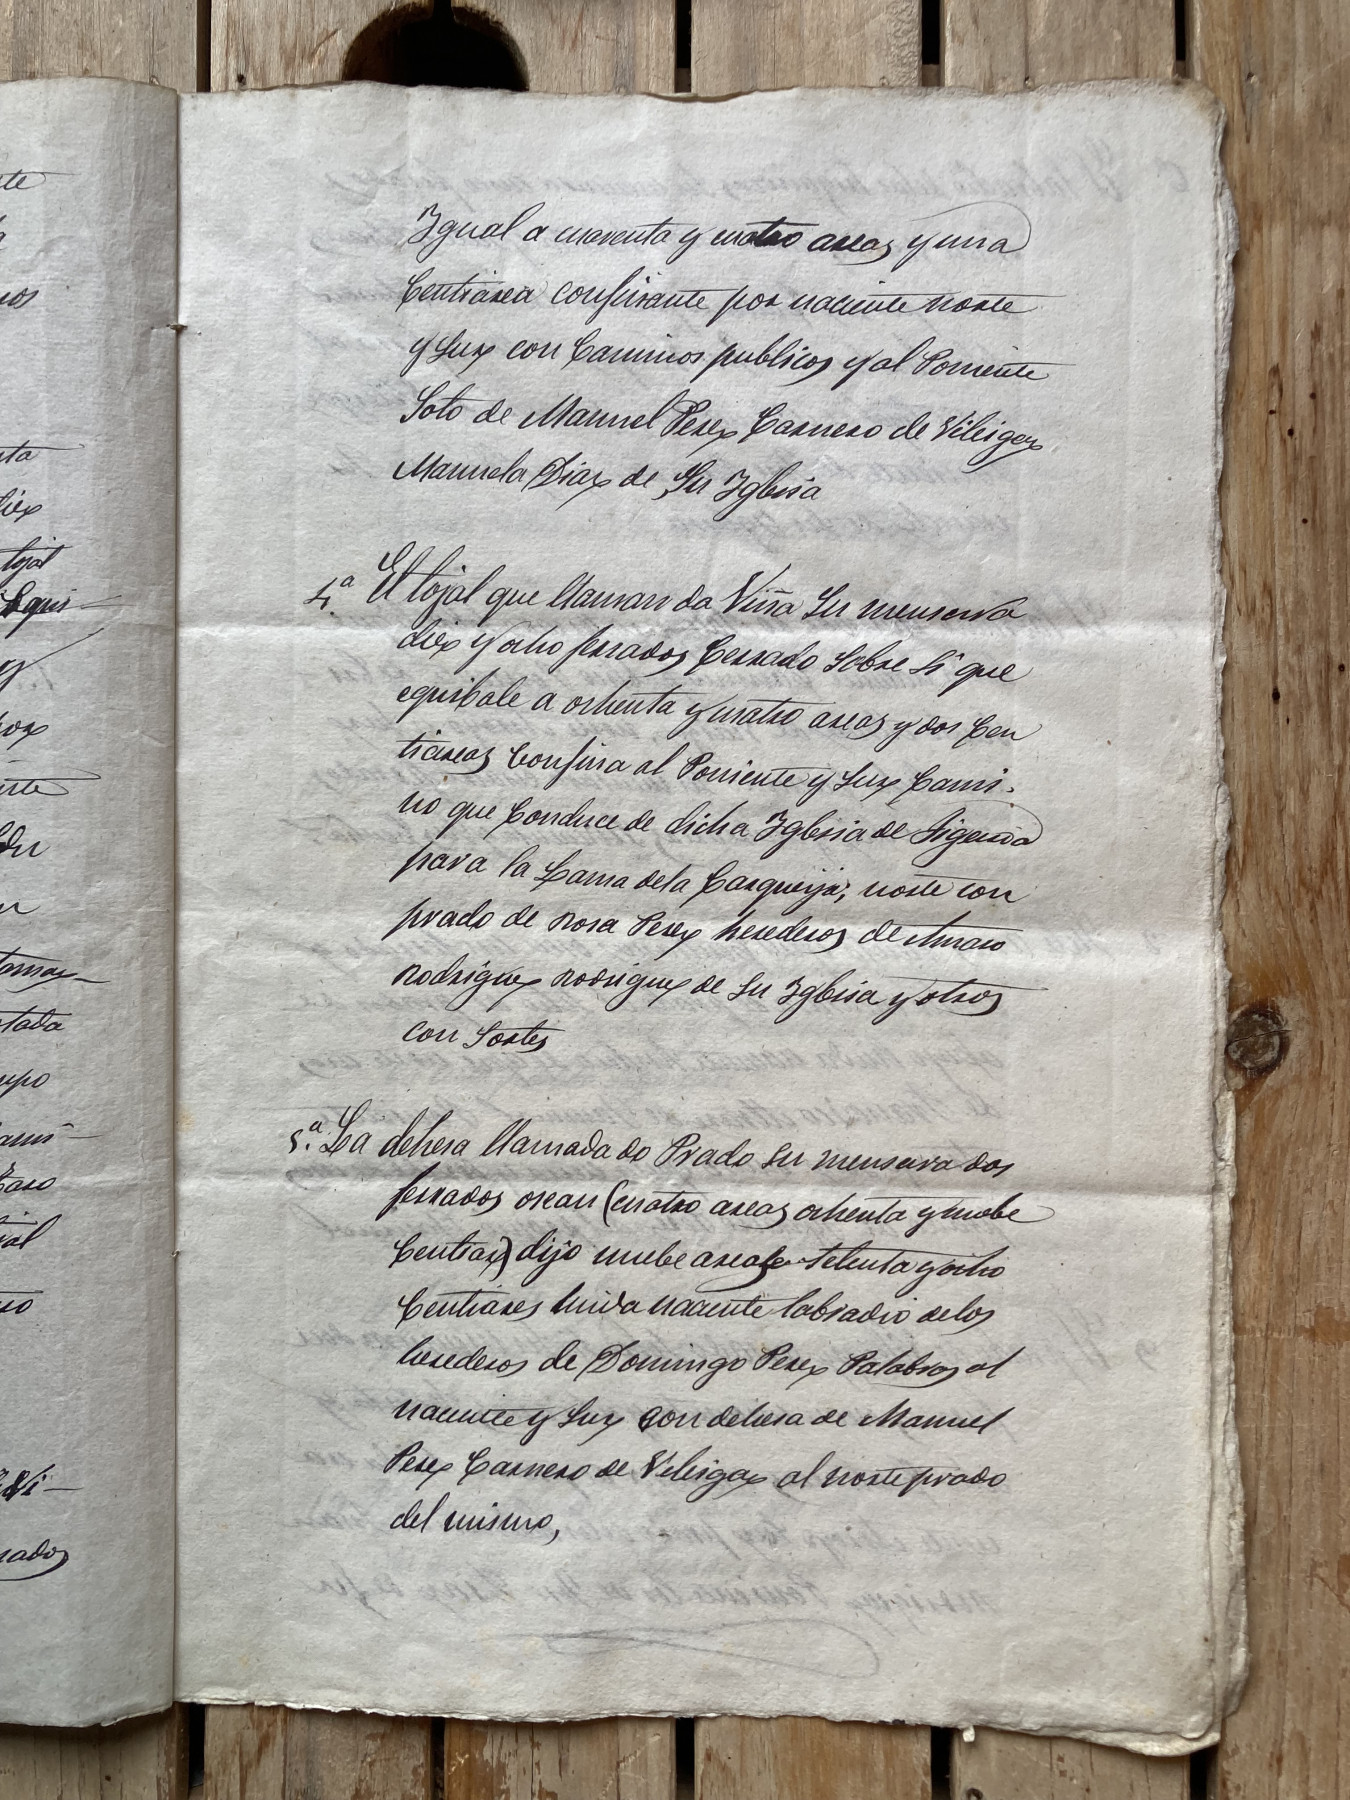 Igual a cuarenta y cuatro areas y una
Centiarea confinante por naciente norte
y Sur con Caminos publicos y al Poniente
Soto de Manuel Perez Carnero de Vileigez
Manuela Diaz de Su Iglesia
4.ª El tojal que llaman da Viña Su mensura
diez y ocho ferrados Cerrado Sobre Si que
equibale a ochenta y cuatro areas y dos Cen
tiareas Confina al Poniente y Sur Cami-
no que Conduce de dicha Iglesia de
para la Lama dela Carqueija; norte con
prado de Rosa Perez herederos de Amaro
Rodriguez Rodriguez de Su Iglesia y otros
con Sortes
5.ª La dehesa llamada do Prado Su mensura dos
ferrados osean (cuatro areas ochenta y nuebe
Centias) dijo nuebe areas setenta y ocho
Centiares linda naciente labradio delos
herederos de Domingo Perez Palabras al
naciente y Sur con dehesa de Manuel
Perez Carnero de Vileigaz al norte prado
del mismo,
te
nos
ta
tojal
tada
upo
ami-
nados